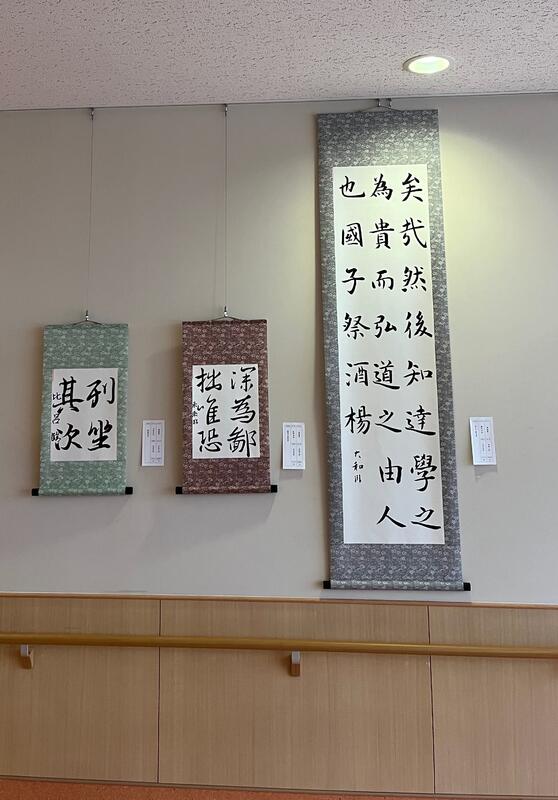 矣哉然後知達學之
為貴而弘道之由人
也國子祭酒楊
大和川
深為鄙
拙唯恐
列坐
其次